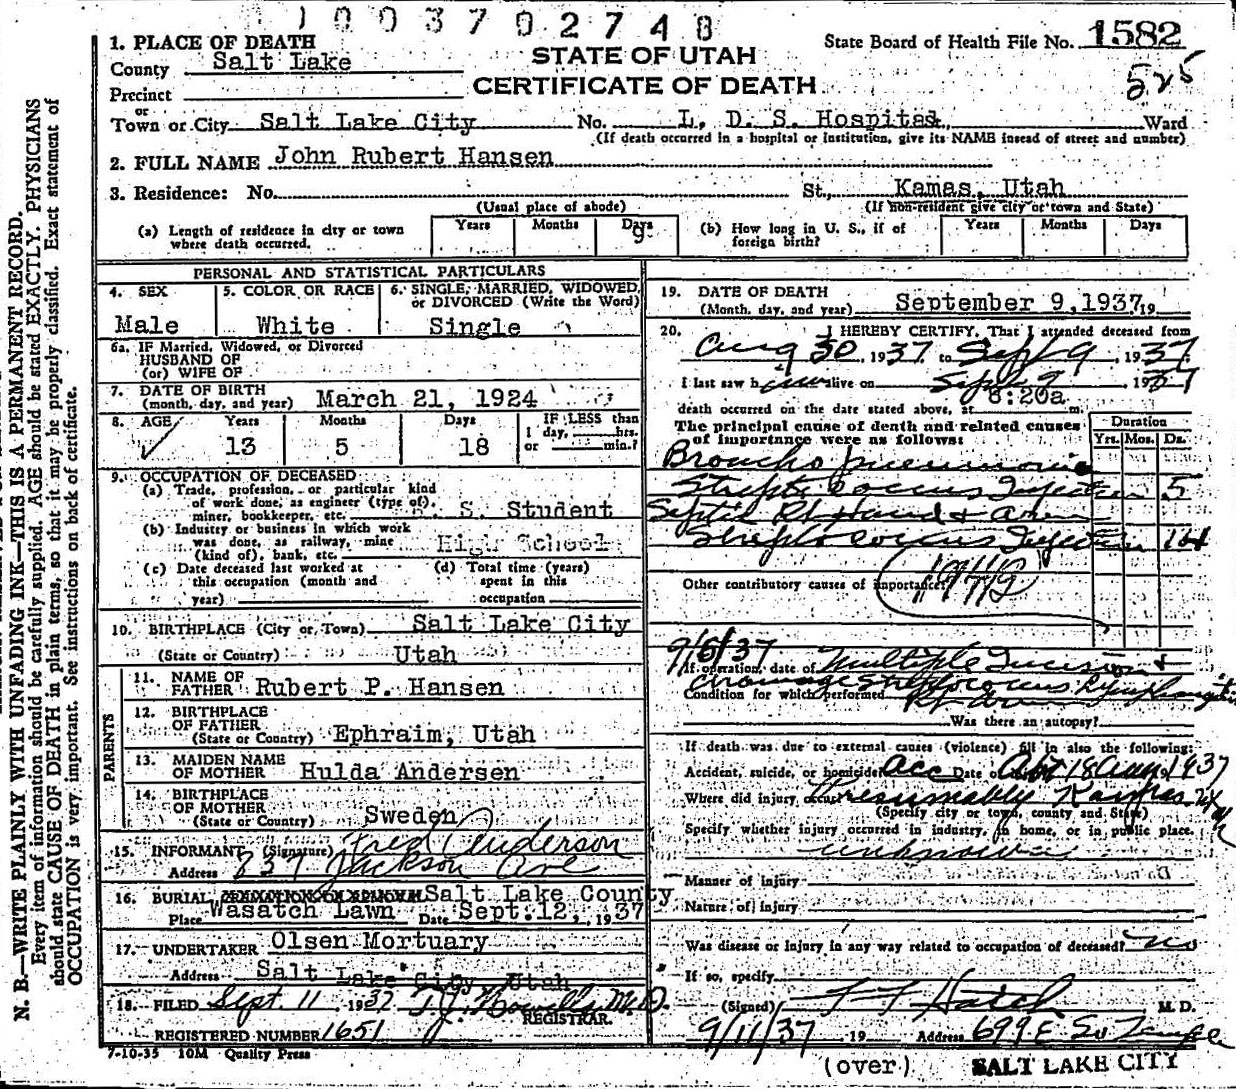 1003702748
1. PLACE OF DEATH
STATE OF UTAH
State Board of Health File No. 1582
County Salt Lake
CERTIFICATE OF DEATH
525
Precinct
or
Town or City Salt Lake City No. L. D. S. Hospital, Ward
(If death occurred in a hospital or institution, give its NAME insead of street and number)
2. FULL NAME John Rubert Hansen
3. Residence: No. St., Kamas, Utah
(Usual place of abode) (If non-resident give city or town and State)
(a) Length of residence in city or town where death occurred. Years Months Days 9
(b) How long in U. S., if of foreign birth? Years Months Days
PERSONAL AND STATISTICAL PARTICULARS
4. SEX 5. COLOR OR RACE 6. SINGLE, MARRIED, WIDOWED, or DIVORCED (Write the Word)
Male White Single
6a. IF Married, Widowed, or Divorced
HUSBAND OF
(or) WIFE OF
7. DATE OF BIRTH
(month, day, and year) March 21, 1924
8. AGE Years Months Days IF LESS than
1 day, hrs.
or min.?
13 5 18
9. OCCUPATION OF DECEASED
(a) Trade, profession, or particular kind
of work done, as engineer (type of),
miner, bookkeeper, etc. S. Student
(b) Industry or business in which work
was done, as railway, mine
(kind of), bank, etc. High School
(c) Date deceased last worked at
this occupation (month and
year)
(d) Total time (years)
spent in this
occupation
10. BIRTHPLACE (City or Town) Salt Lake City
(State or Country) Utah
PARENTS
11. NAME OF
FATHER Rubert P. Hansen
12. BIRTHPLACE
OF FATHER
(State or Country) Ephraim, Utah
13. MAIDEN NAME
OF MOTHER Hulda Andersen
14. BIRTHPLACE
OF MOTHER
(State or Country) Sweden
15. INFORMANT (Signature) Fred Anderson
Address 837 Jackson Ave
16. BURIAL, CREMATION OR REMOVAL Salt Lake County
Place Wasatch Lawn Date Sept. 12, 1937
17. UNDERTAKER Olsen Mortuary
Address Salt Lake City, Utah
18. FILED Sept. 11 1937 T. J. Howells M.D.
REGISTRAR.
REGISTERED NUMBER 1651
7-10-35 10M Quality Press
19. DATE OF DEATH
(Month, day, and year) September 9, 1937 19
20. I HEREBY CERTIFY, That I attended deceased from
Aug 30, 1937 to Sept 9, 1937
I last saw him alive on Sept 9, 1937
8:20a
death occurred on the date stated above, at m.
The principal cause of death and related causes
of importance were as follows:
Duration
Yrs. Mos. Ds.
Broncho pneumonia
Streptococcus Infection 5
Septic Rt Hand & Arm
Streptococcus Infection
Other contributory causes of importance:
9/5/37
If operation, date of Multiple Incision +
drainage Streptococcus Lymphangitis
Condition for which performed Rt arm
Was there an autopsy?
If death was due to external causes (violence) fill in also the following:
Accident, suicide, or homicide acc Date of Abt 18 Aug 1937
Where did injury occur Presumably Kamas
(Specify city or town, county and State)
Specify whether injury occurred in industry, in home, or in public place.
unknown
Manner of injury
Nature of injury
Was disease or injury in any way related to occupation of deceased? no
If so, specify
(Signed) Hatch M. D.
9/11/37 19 Address 699 E So Temple
(over) SALT LAKE CITY
N. B.—WRITE PLAINLY WITH UNFADING INK—THIS IS A PERMANENT RECORD.
Every item of information should be carefully supplied. AGE should be stated EXACTLY. PHYSICIANS
should state CAUSE OF DEATH in plain terms, so that it may be properly classified. Exact statement of
OCCUPATION is very important. See instructions on back of certificate.